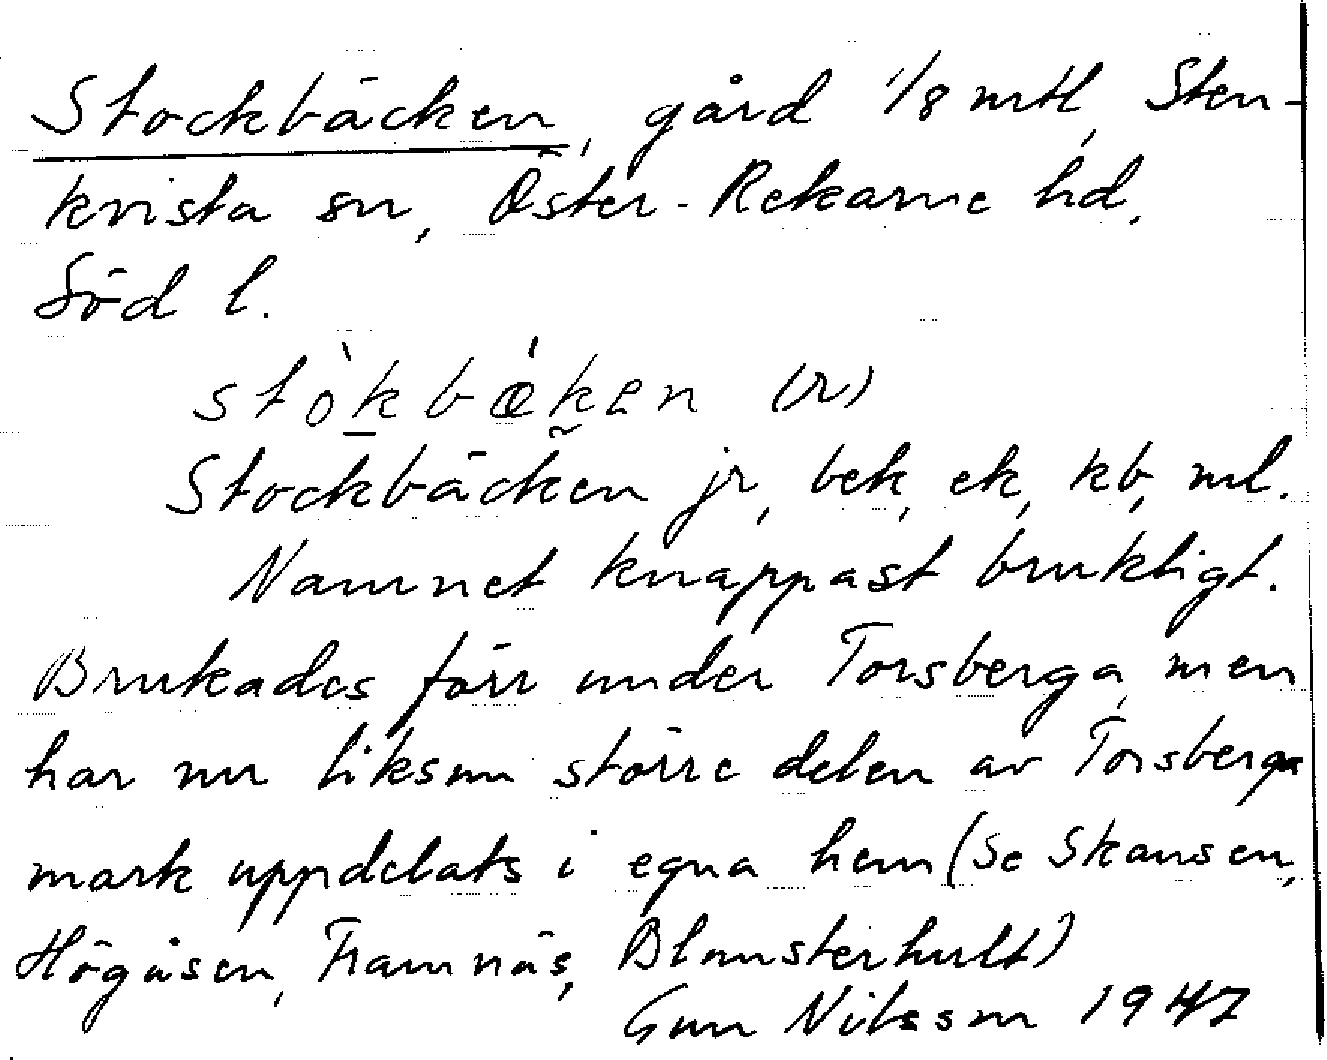 Stockbäcken, gård 1/8 mtl, Sten-
kvista sn, Öster-Rekarne hd,
Söd l.
stòkbǽken (r)
Stockbäcken jr, bek, ek, kb, ml.
Namnet knappast brukligt.
Brukades förr under Torsberga, men
har nu liksom större delen av Torsberga
mark uppdelats i egna hem (Se Skansen,
Högåsen, Framnäs, Blomsterhult)
Gun Nilsson 1947